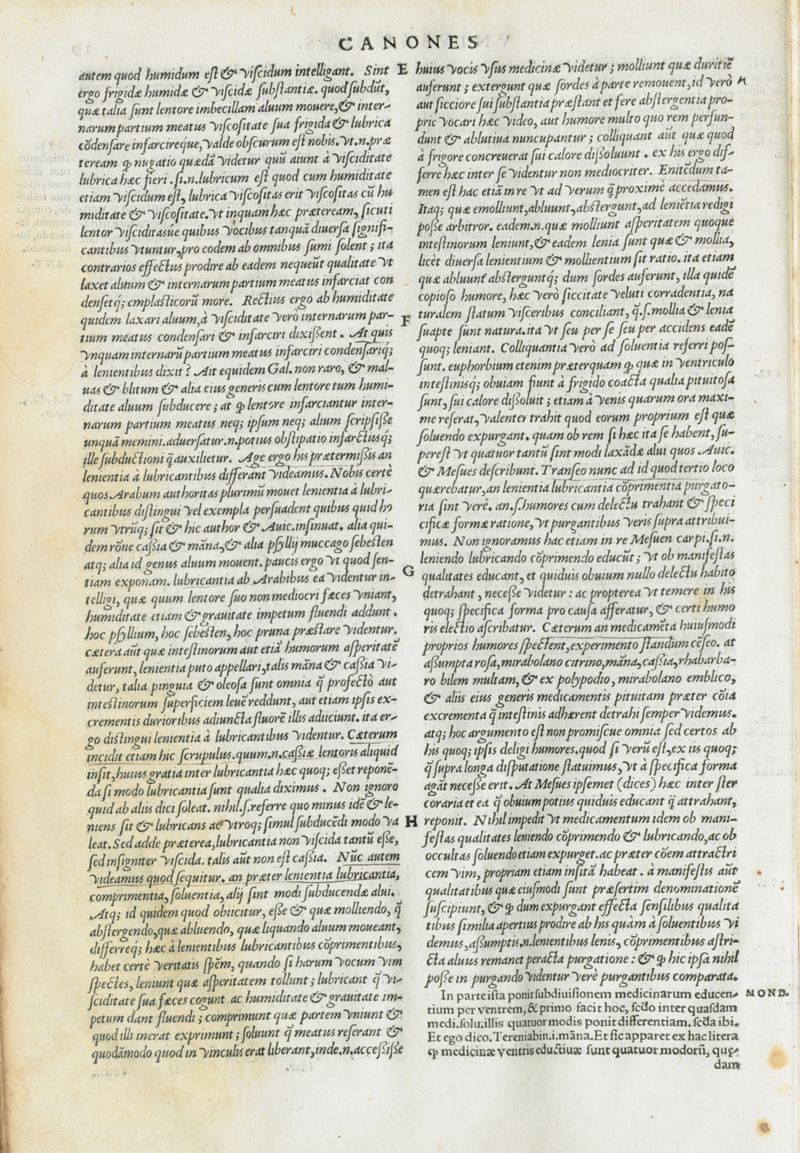 CANONES
autem quod humidum est & viscidum intelligant. Sint
ergo frigidæ humidæ & viscidæ substantiæ. quod subdūt,
quæ talia sunt lentore imbecillam aluum mouere, & inter-
narum partium meatus viscositate sua frigida & lubrica
cōdensare infarcireque, valde obscurum est nobis. vt .n. præ
teream ꝙ nugatio quædā videtur quū aiunt à visciditate
lubrica hæc fieri. si .n. lubricum est quod cum humiditate
etiam viscidum est, lubrica viscositas erit viscositas cū hu
miditate & viscositate. vt inquam hæc præteream, sicuti
lentor visciditasue quibus vocibus tanquā diuersa signifi-
cantibus vtuntur, pro eodem ab omnibus sumi solent; ita
contrarios effectus prodire ab eadem nequeūt qualitate vt
laxet aluum & internarum partium meatus infarciat con
densetq; emplasticorū more. Rectius ergo ab humiditate
quidem laxari aluum, à visciditate verò internarum par-
tium meatus condensari & infarciri dixissent. At quis
vnquam internarū partium meatus infarciri condensariq;
à lenientibus dixit? Ait equidem Gal. non raro, & mal-
uas & blitum & alia eius generis cum lentore tum humi-
ditate aluum subducere; at ꝙ lentore infarciantur inter-
narum partium meatus neq; ipsum neq; alium scripsisse
unquā memini. aduersatur .n. potius obstipatio infarctusq;
ille subductioni q̄ auxilietur. Age ergo his prætermissis an
lenientia à lubricantibus differant videamus. Nobis certè
quos Arabum authoritas plurimū mouet lenientia à lubri-
cantibus distingui vel exempla persuadent quibus quid ho
rum vtrūq; sit & hic author & Auic. insinuat. alia qui-
dem rōne cassia & māna, & alia psyllij muccago sebesten
atq; alia id genus aluum mouent. paucis ergo vt quod sen-
tiam exponam. lubricantia ab Arabibus ea videntur in-
telligi, quæ quum lentore suo non mediocri fæces vniant,
humiditate etiam & grauitate impetum fluendi addunt.
hoc psyllium, hoc sebesten, hoc pruna præstare videntur.
cætera aūt quæ intestinorum aut etiā humorum asperitatē
auferunt, lenientia puto appellari, talis māna & cassia vi-
detur, talia pinguia & oleosa sunt omnia q̄ profectò aut
intestinorum superficiem leuē reddunt, aut etiam ipsis ex-
crementis durioribus adiuncta fluorē illis adiiciunt. ita er-
go distingui lenientia à lubricantibus videntur. Cæterum
incidit etiam hic scrupulus. quum .n. cassiæ lentoris aliquid
insit, huius gratia inter lubricantia hæc quoq; esset reponē-
da si modo lubricantia sunt qualia diximus. Non ignoro
quid ab aliis dici soleat. nihil .s. referre quo minus idē & le-
niens sit & lubricans ac vtroq; simul subducēdi modo va
leat. Sed adde præterea, lubricantia non viscida tantū esse,
sed insigniter viscida. talis aūt non est cassia. Nūc autem
videamus quod sequitur. an præter lenientia lubricantia,
comprimentia, soluentia, alij sint modi subducendæ alui.
Atq; id quidem quod obiicitur, esse & quæ molliendo, q̄
abstergendo, quæ abluendo, quæ liquando aluum moueant,
differreq; hæc à lenientibus lubricantibus cōprimentibus,
habet certè veritatis spēm, quando si harum vocum vim
spectes, leniunt quæ asperitatem tollunt; lubricant q̄ vi-
sciditate sua fæces cogunt ac humiditate & grauitate im-
petum dant fluendi; comprimunt quæ partem vniunt &
quod illi inerat exprimunt; soluunt q̄ meatus referant &
quodāmodo quod in vinculis erat liberant, inde .n. accessisse
E huius vocis vsus medicinæ videtur; molliunt quæ duritiē
auferunt; extergunt quæ sordes à parte remouent, id verò
aut sicciore sui substantia præstant et fere abstergentia pro-
prie vocari hæc video, aut humore multo quo rem perfun-
dunt & ablutiua nuncupantur; colliquant aūt quæ quod
à frigore concreuerat sui calore dissoluunt. ex his ergo dif-
ferre hæc inter se videntur non mediocriter. Enitēdum ta-
men est hac etiā in re vt ad verum q̄ proximè accedamus.
Itaq; quæ emolliunt, abluunt, abstergunt, ad leniētia redigi
posse arbitror. eadem .n. quæ molliunt asperitatem quoque
intestinorum leniunt, & eadem lenia sunt quæ & mollia,
licèt diuersa lenientium & mollientium sit ratio. ita etiam
quæ abluunt abstergūtq; dum sordes auferunt, illa quidē
copioso humore, hæc verò siccitate veluti corradentia, na
turalem statum visceribus conciliant, q̄ .s. mollia & lenia
F suapte sunt natura. ita vt seu per se seu per accidens eadē
quoq; leniant. Colliquantia verò ad soluentia referri pos-
sunt. euphorbium etenim præterquam ꝙ quæ in ventriculo
intestinisq; obuiam fiunt à frigido coacta qualia pituitosa
sunt, sui calore dissoluit; etiam à venis quarum ora maxi-
me referat, valenter trahit quod eorum proprium est quæ
soluendo expurgant. quam ob rem si hæc ita se habent, su-
perest vt quatuor tantū sint modi laxādæ alui quos Auic.
& Mesues describunt. Transeo nunc ad id quod tertio loco
quærebatur, an lenientia lubricantia cōprimentia purgato-
ria sint verè. an .s. humores cum delectu trahant & speci
ficæ formæ ratione, vt purgantibus veris supra attribui-
mus. Non ignoramus hac etiam in re Mesuen carpi. si .n.
leniendo lubricando cōprimendo educūt; vt ob manifestas
G qualitates educant, et quiduis obuium nullo delectu habito
detrahant, necesse videtur: ac propterea vt temere in his
quoq; specifica forma pro causa afferatur, & certi humo
ris electio ascribatur. Cæterum an medicamēta huiusmodi
proprios humores spectent, experimento standum cēseo. at
assumpta rosa, mirabolano citrino, māna, cassia, rhabarba-
ro bilem multam, & ex polypodio, mirabolano emblico,
& aliis eius generis medicamentis pituitam præter cōia
excrementa q̄ intestinis adhærent detrahi semper videmus.
atq; hoc argumento est non promiscue omnia sed certos ab
his quoq; ipsis deligi humores. quod si verū est, ex iis quoq;
q̄ supra longa disputatione statuimus, vt à specifica forma
agāt necesse erit. At Mesues ipsemet (dices) hæc inter ster
coraria et ea q̄ obuium potius quiduis educant q̄ attrahant,
H reponit. Nihil impedit vt medicamentum idem ob mani-
festas qualitates leniendo cōprimendo & lubricando, ac ob
occultas soluendo etiam expurget. ac præter cōem attractri
cem vim, propriam etiam insitā habeat. à manifestis aūt
qualitatibus quæ eiusmodi sunt præsertim denominationē
suscipiunt, & ꝙ dum expurgant effecta sensilibus qualita
tibus similia apertius prodire ab his quam à soluentibus vi
demus, assumptis .n. lenientibus lenis, cōprimentibus astri-
cta aluus remanet peracta purgatione: & ꝙ hic ipsa nihil
posse in purgando videntur verè purgantibus comparata.
In parte ista ponit subdiuisionem medicinarum educen- MOND.
tium per ventrem, & primo facit hoc, secūdo inter quasdam
medi. solu. illis quatuor modis ponit differentiam. secūda ibi.
Et ego dico. Tereniabin. i. māna. Et sic apparet ex hac litera
ꝙ medicinæ ventris eductiuæ sunt quatuor modorū, quę-
dam